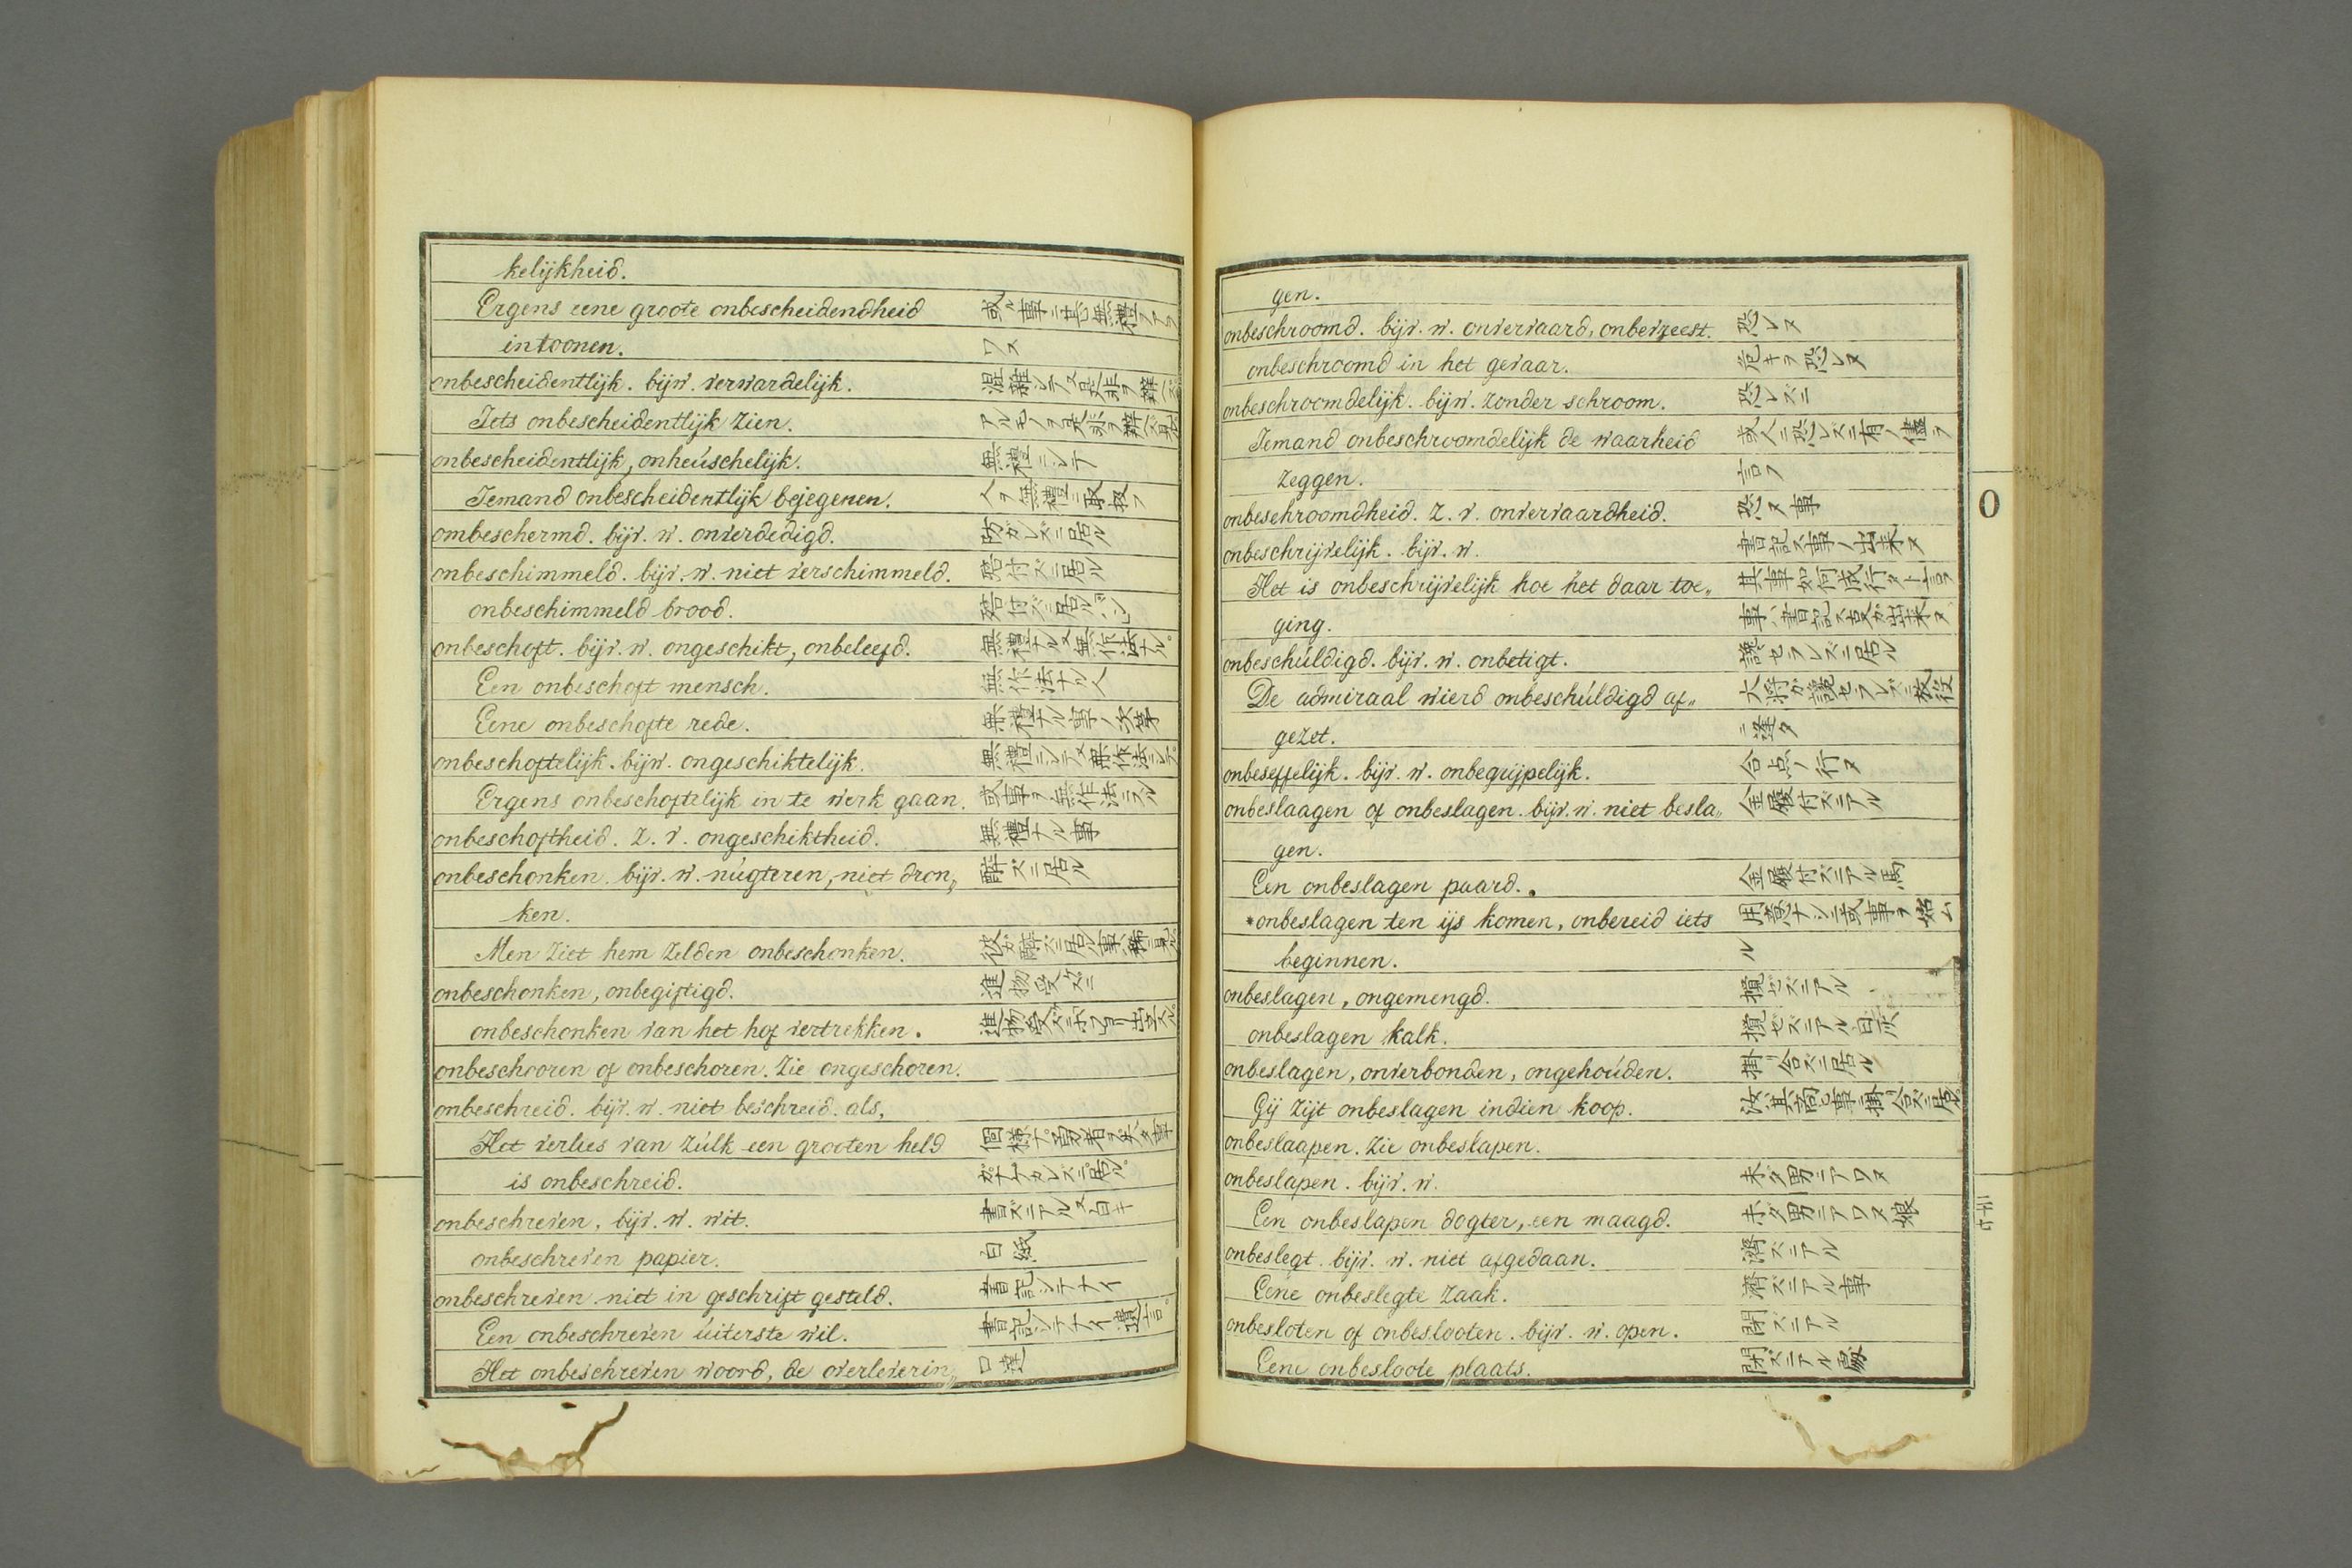 kelijkheid.
Ergens eene groote onbescheidendheid 或ル事ニ甚無禮ヲアラ
in toonen. ワス
onbescheidentlijk. bijw. verwardelijk. 混雜シテ又是非ヲ辨ヘズ
Iets onbescheidentlijk zien. アルモノヲ是非ヲ辨ヘズ見ル
onbescheidentlijk, onheúschelijk. 無禮ニシテ
Iemand onbescheidentlijk bejegenen. 人ヲ無禮ニ取扱フ
ombeschermd. bijv. w. onverdedigd. 防ガレズニ居ル
onbeschimmeld. bijv. w. niet verschimmeld. 付ズニ居ル
onbeschimmeld brood. 付ズニ居ルパン
onbeschoft. bijv. w. ongeschikt, onbeleefd. 無禮ナル又無作法ナル
Een onbeschoft mensch. 無作法ナル人
Eene onbeschofte rede. 無禮ナル事ノ次第
onbeschoftelijk. bijw. ongeschiktelijk. 無禮ニシテ又無作法ニシテ
Ergens onbeschoftelijk in te werk gaan. 或事ヲ無作法ニスル
onbeschoftheid. z. v. ongeschiktheid. 無禮ナル事
onbeschonken. bijv. w. núgteren, niet dron„ 醉ズニ居ル
ken.
Men ziet hem zelden onbeschonken. 彼ガ醉ズニ居ル事ヲ稀ニ見ル
onbeschonken, onbegiftigd. 進物受ズニ
onbeschonken van het hof vertrekken. 進物受ズニ出立スル
onbeschooren of onbeschoren. Zie ongeschoren.
onbeschreid. bijv. w. niet beschreid. als,
Het verlies van zúlk een grooten held 個樣ナ勇者ヲ失タ事
is onbeschreid. ガナゲカレズニ居ル
onbeschreven, bijv. w. wit. 書ズニアル又白キ
onbeschreven papier. 白紙
onbeschreven niet in geschrift gesteld. 書記シテナイ
Een onbeschreven úiterste wil. 書記シテナイ遺言
Het onbeschreven woord, de overleverin„ 口達
gen.
onbeschroomd. bijv. w. onvervaard, onbevreest. 恐レヌ
onbeschroomd in het gevaar. 危キヲ恐レヌ
onbeschroomdelijk. bijw. zonder schroom. 恐レズニ
Iemand onbeschroomdelijk de waarheid 或人ニ恐レズニ有ノ儘ヲ
zeggen. 言フ
onbeschroomdheid. z. v. onvervaardheid. 恐ヌ事
onbeschrijvelijk. bijv. w. 書記ス事ノ出來ヌ
Het is onbeschrijvelijk hoe het daar toe„ 其事如何成行タト言フ
ging. 事ハ書記ス事ガ出來ヌ
onbeschúldigd. bijv. w. onbetigt. 讒セラレズニ居ル
De admiraal wierd onbeschúldigd af„ 大將ガ讒セラレズニ放役
gezet. ニ逢タ
onbeseffelijk. bijv. w. onbegrijpelijk. 合点ノ行ヌ
onbeslaagen of onbeslagen. bijv. w. niet besla„ 金履付ズニアル
gen.
Een onbeslagen paard. 金履付ズニアル馬
*onbeslagen ten ijs komen, onbereid iets 用意ナシニ或事ヲ始ム
beginnen. ル
onbeslagen, ongemengd. 攪ゼズニアル
onbeslagen kalk. 攪ゼズニアル白灰
onbeslagen, onverbonden, ongehoúden. 掛リ合ズニ居ル
Gij zijt onbeslagen in dien koop. 汝ハ其商事ニ掛リ合ズニ居ル
onbeslaapen. Zie onbeslapen.
onbeslapen. bijv. w. 未ダ男ニアワヌ
Een onbeslapen dogter, een maagd. 未ダ男ニアワヌ娘
onbeslegt. bijv. w. niet afgedaan. 濟ズニアル
Eene onbeslegte zaak. 濟ズニアル事
onbesloten of onbeslooten. bijv. w. open. 閉ズニアル
Eene onbesloote plaats. 閉ズニアル處
O